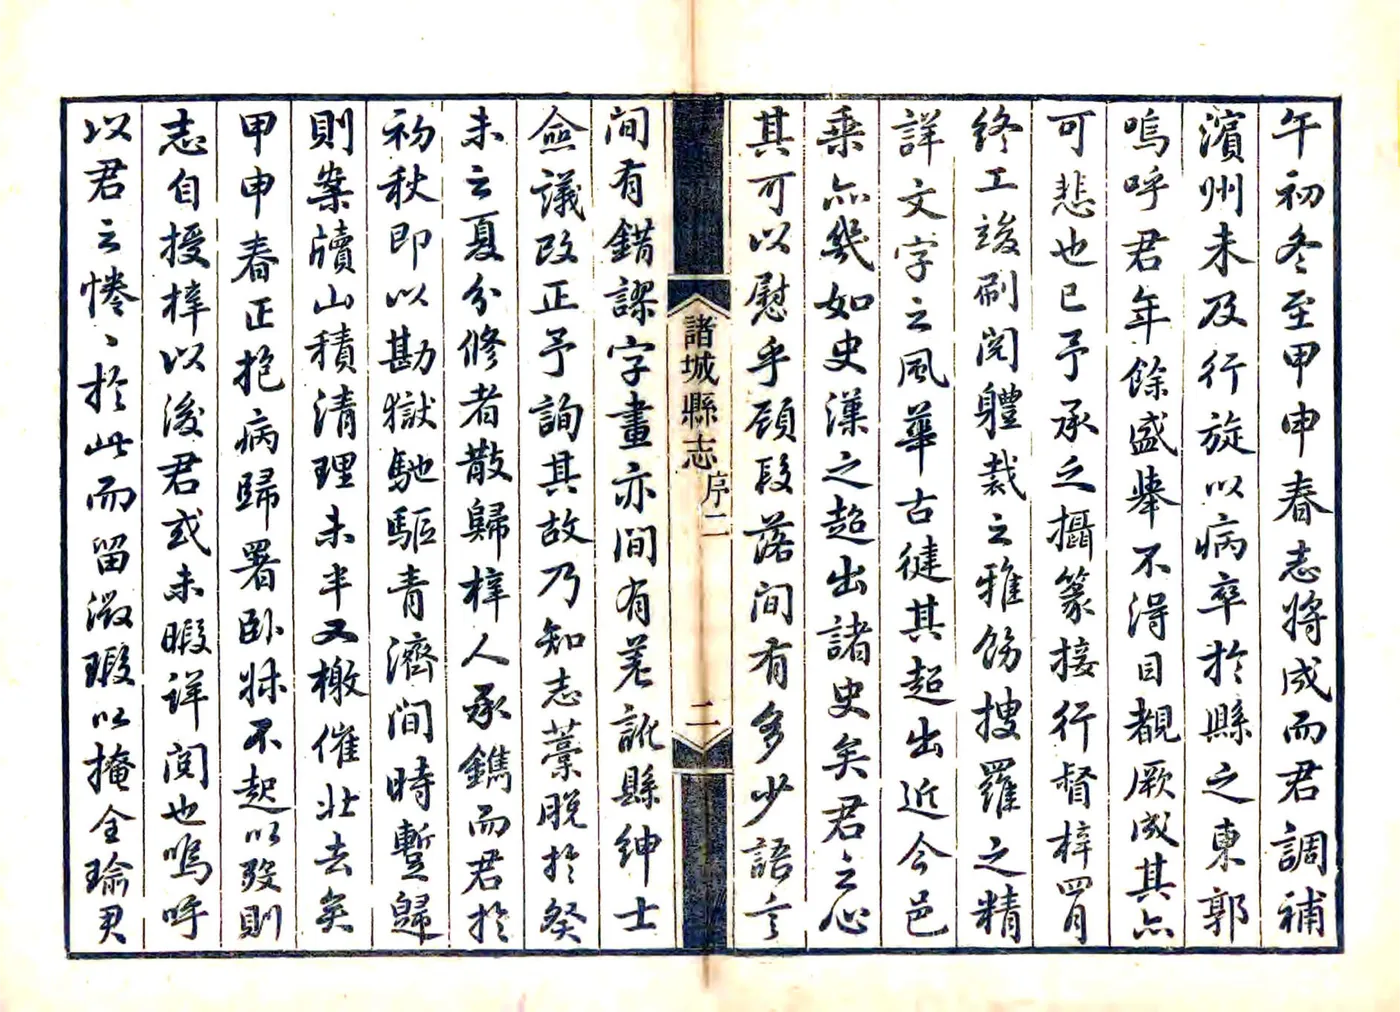 午初冬至甲申春志將成而君調補
濱州未及行旋以病卒於縣之東郭
嗚呼君年餘盛舉不得目覩厥成其亦
可悲也已予承乏攝篆接行督梓四月
終工竣刷閱體裁之雅飭搜羅之精
詳文字之風華古健其超出近今邑
乘亦幾如史漢之超出諸史矣君之心
其可以慰乎顧段落間有多少語言
諸城縣志
序二
二
間有錯謬字畫亦間有差訛縣紳士
僉議改正予詢其故乃知志藁脫於癸
未云夏分修者散歸梓人承鐫而君於
初秋即以勘獄馳驅青濟間時暫歸
則案牘山積清理未半又檄催北去矣
甲申春正抱病歸署卧牀不起以歿則
志自授梓以後君或未暇詳閱也嗚呼
以君之惓、於此而留微瑕以掩全瑜君